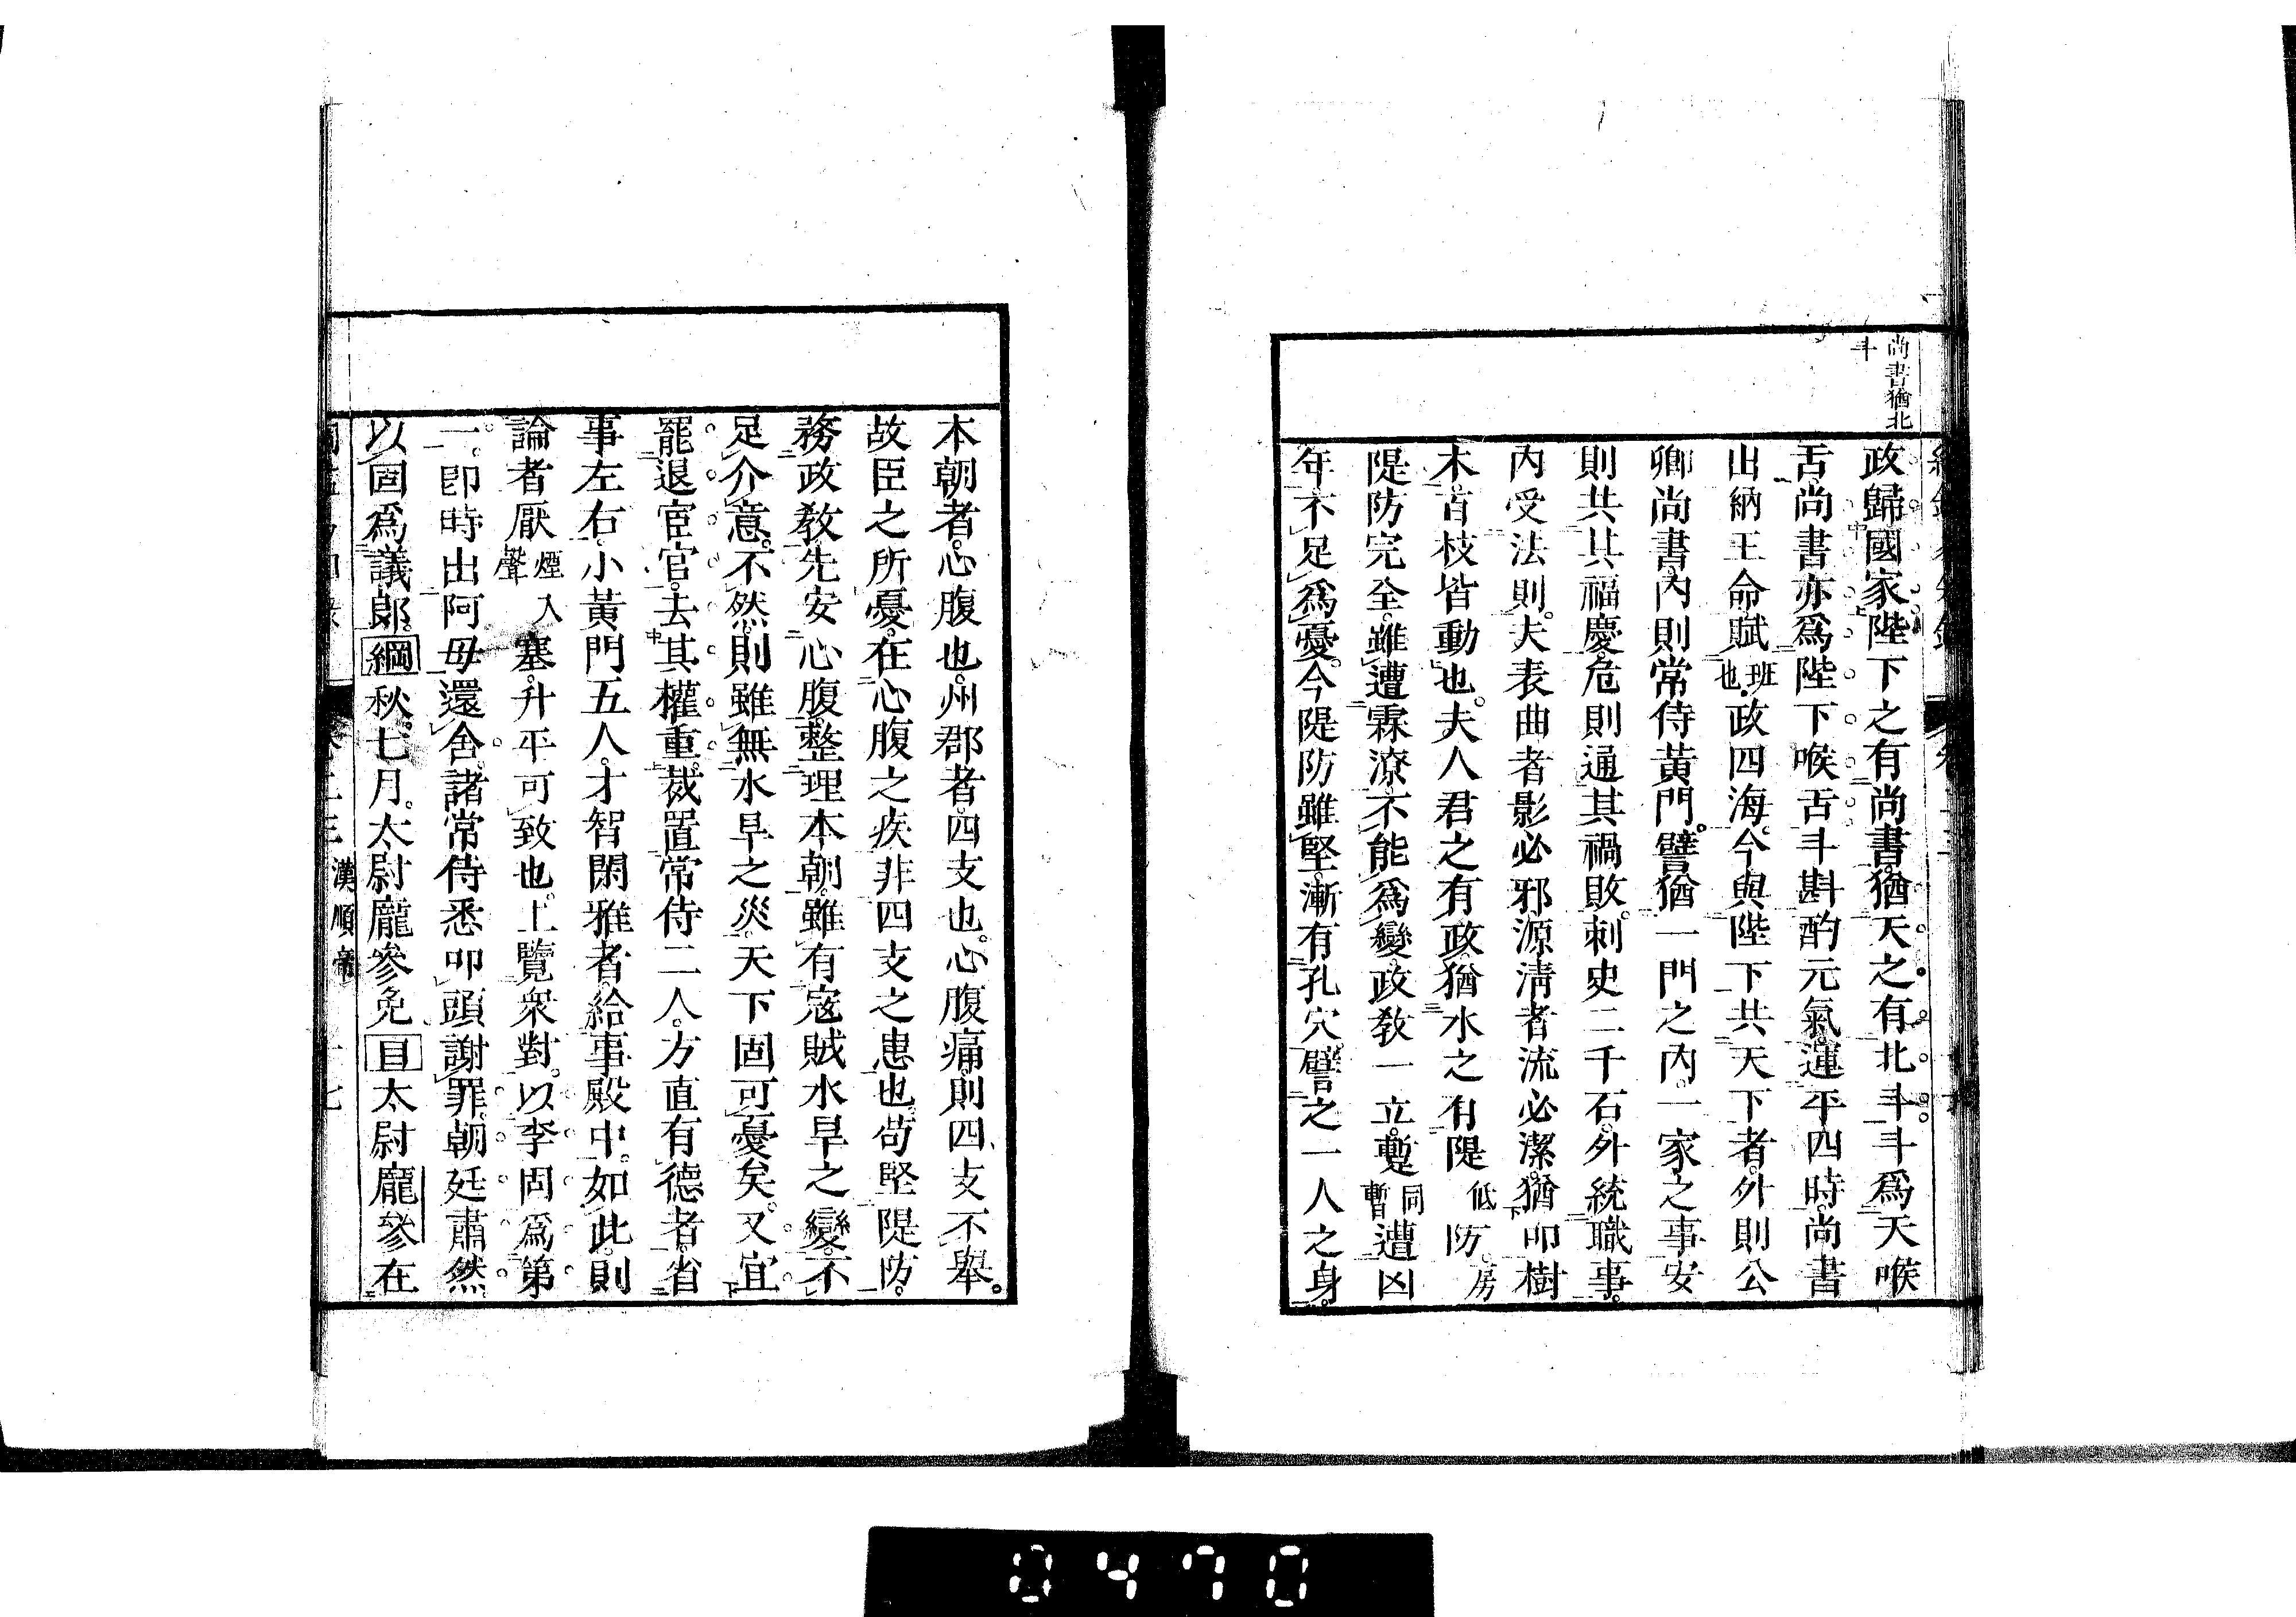 尚書猶北
斗
政歸國家陛下之有尚書猶天之有北斗斗爲天喉
舌尚書亦爲陛下喉舌斗斟酌元氣運平四時尚書
出納王命賦班也政四海今與陛下共天下者外則公
卿尚書內則常侍黃門譬猶一門之內一家之事安
則共其福慶危則通其禍敗刺史二千石外統職事
內受法則夫表曲者影必邪源淸者流必潔猶叩樹
木百枝皆動也夫人君之有政猶水之有隄低防房
隄防完全雖遭霖潦不能爲變政敎一立蹔同暫遭凶
年不足爲憂今隄防雖堅漸有孔穴譬之一人之身
本朝者心腹也州郡者四支也心腹痛則四支不舉
故臣之所憂在心腹之疾非四支之患也苟堅隄防
務政敎先安心腹整理本朝雖有寇賊水旱之變不
足介意不然則雖無水旱之災天下固可憂矣又宜
罷退宦官去其權重裁置常侍二人方直有德者省
事左右小黃門五人才智閑雅者給事殿中如此則
論者厭煙入聲塞升平可致也上覽衆對以李固爲第
一即時出阿母還舍諸常侍悉叩頭謝罪朝廷肅然
以固爲議郎綱秋七月太尉龐參免目太尉龐參在
漢順帝
0470